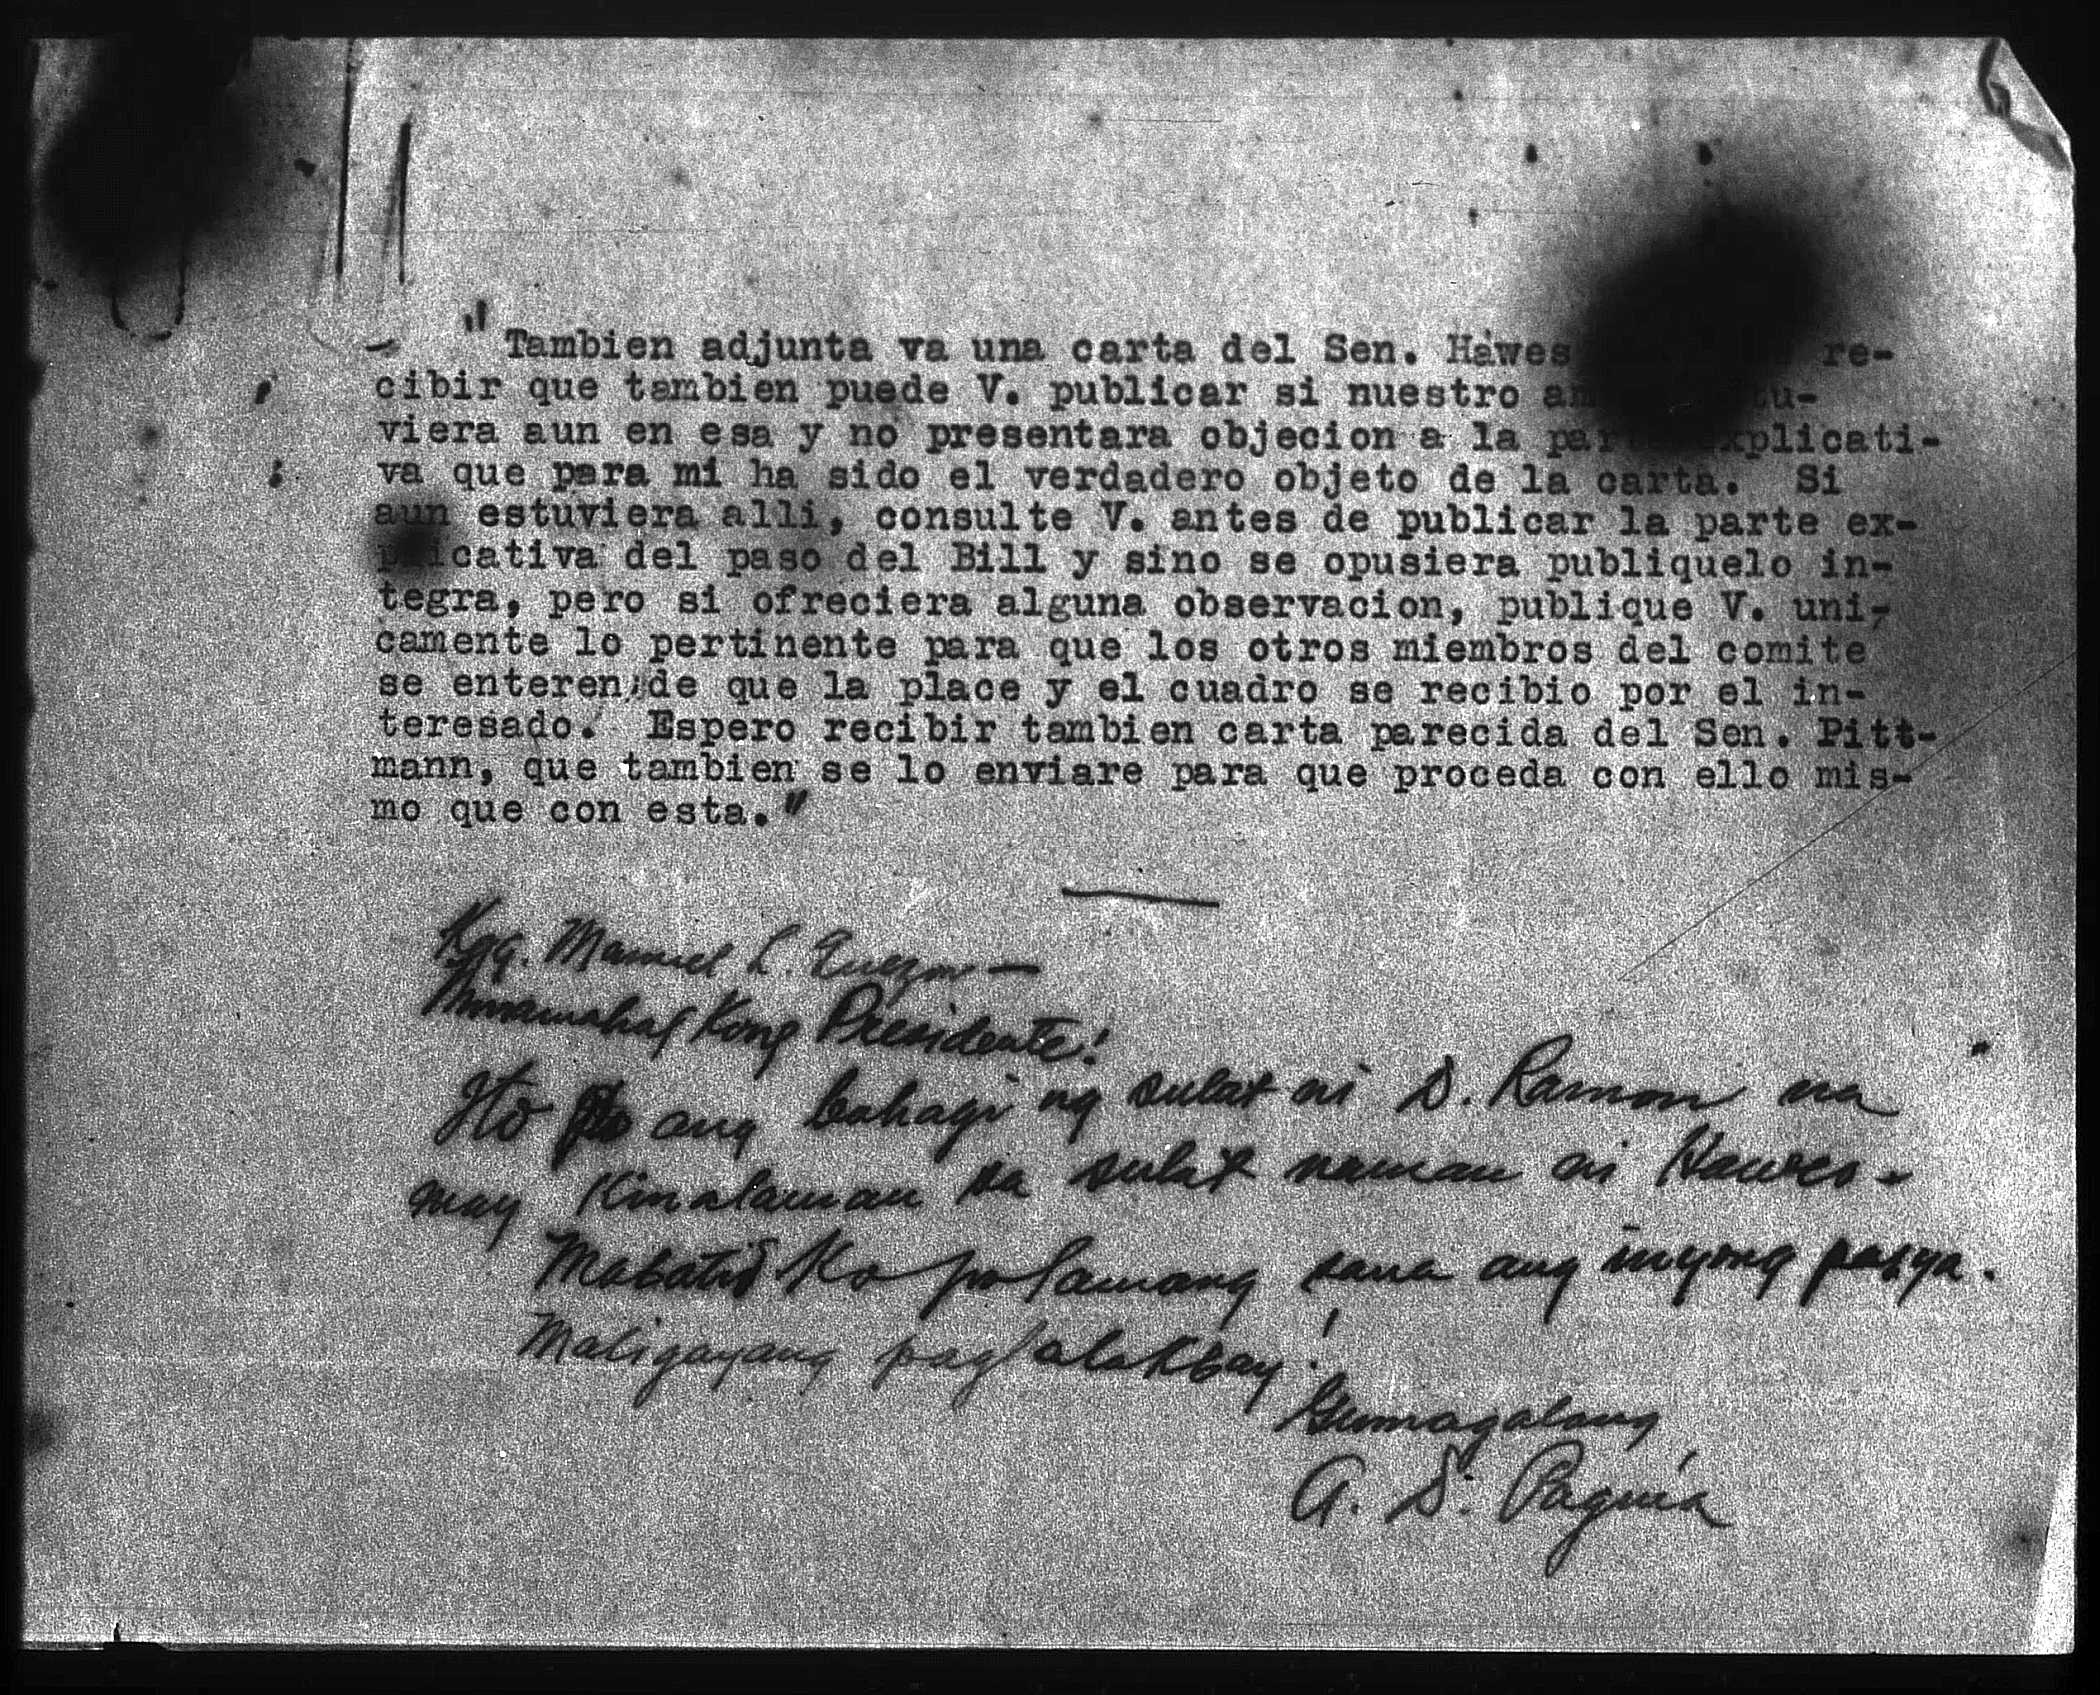 "Tambien adjunta va una carta del Sen. Hawes re-
cibir que tambien puede V. publicar si nuestro tu-
viera aun en esa y no presentara objecion a la parte explicati-
va que para mi ha sido el verdadero objeto de la carta. Si
aun estuviera alli, consulte V. antes de publicar la parte ex-
plicativa del paso del Bill y sino se opusiera publiquelo in-
tegra, pero si ofreciera alguna observacion, publique V. uni-
camente lo pertinente para que los otros miembros del comite
se enteren de que la place y el cuadro se recibio por el in-
teresado. Espero recibir tambien carta parecida del Sen. Pitt-
mann, que tambien se lo enviare para que proceda con ello mis-
mo que con esta."
Kgg. Manuel L. Quezon —
Minamahal Kong Presidente!
Ito po ang bahagi ng sulat ni D. Ramon na
may Kinalaman sa sulat naman ni Hawes.
Mabatid Ko po lamang sana ang inyong pasya.
Maligayang paglalakbay!
Gumagalang
A. D. Paguia